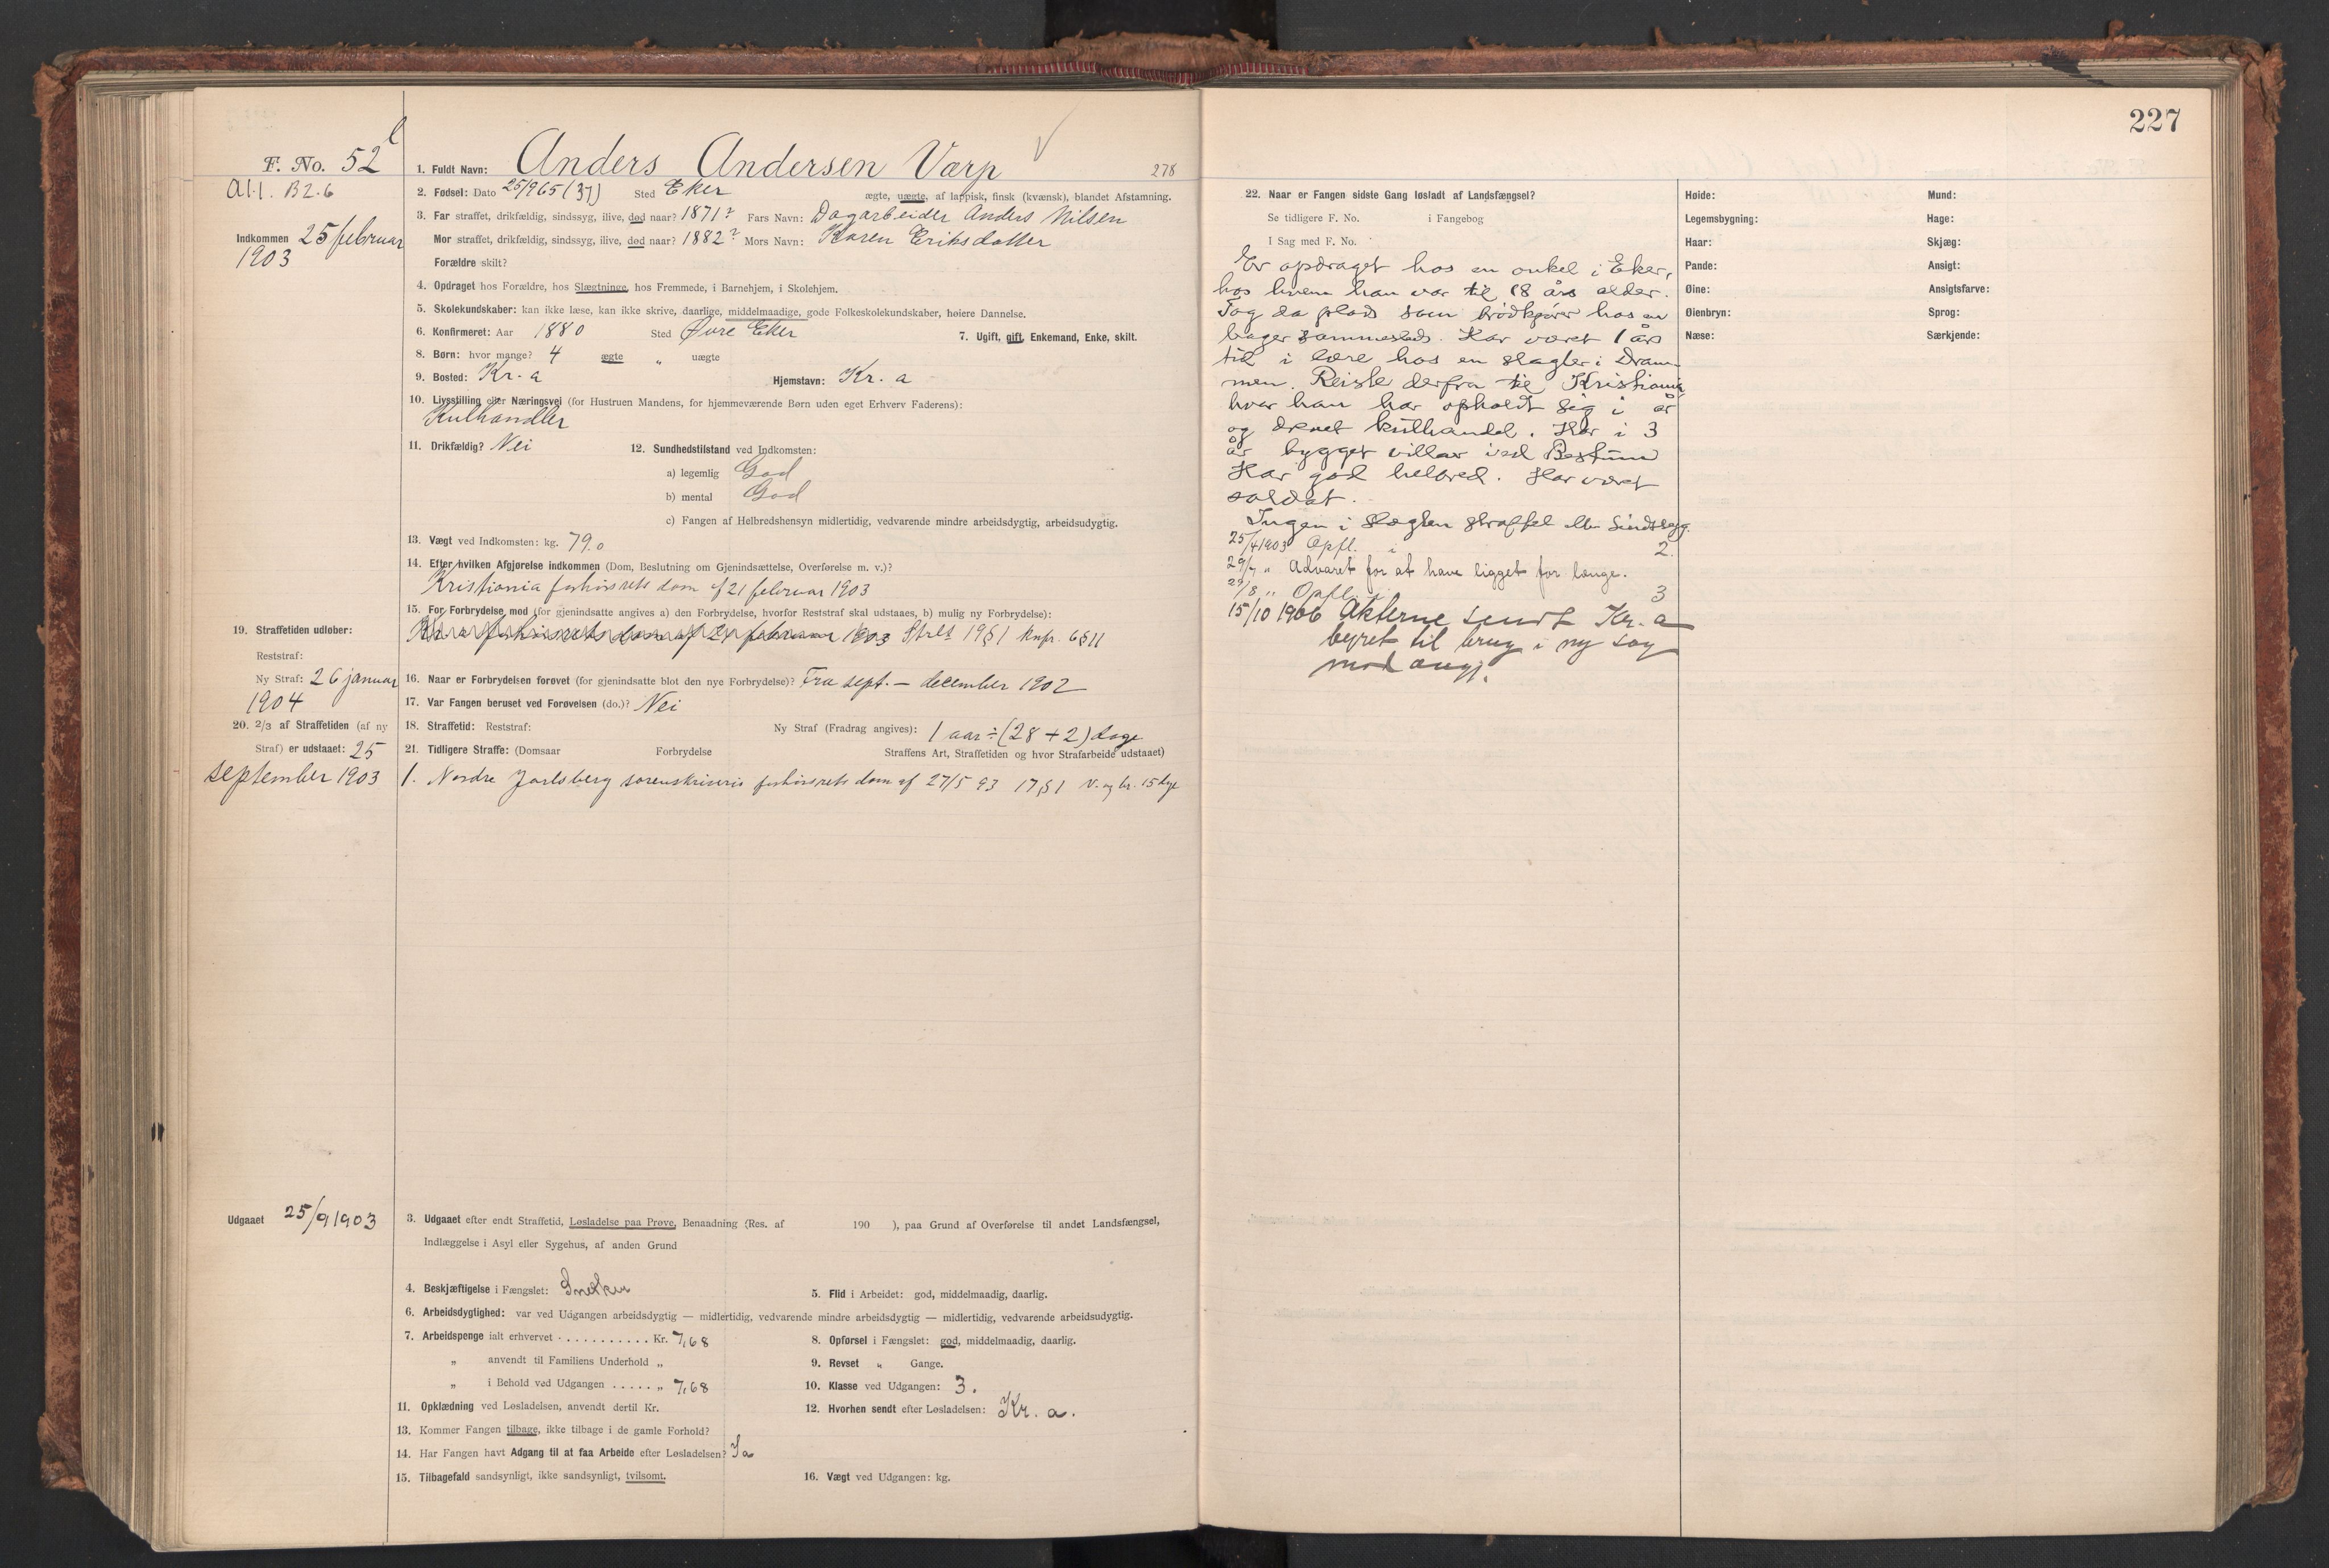 227
F. No. 52 b
A1.1. B2.6
Indkommen 25 februar
1903
1. Fuldt Navn: Anders Andersen Varp
278
2. Fødsel: Dato 25/9 65 (37) Sted Eker ægte, uægte, af lappisk, finsk (kvænsk), blandet Afstamning.
3. Far straffet, drikfældig, sindssyg, ilive, død naar? 1871? Fars Navn: Dagarbeider Anders Nilsen
Mor straffet, drikfældig, sindssyg, ilive, død naar? 1882? Mors Navn: Karen Eriksdatter
Forældre skilt?
4. Opdraget hos Forældre, hos Slægtninge, hos Fremmede, i Barnehjem, i Skolehjem.
5. Skolekundskaber: kan ikke læse, kan ikke skrive, daarlige, middelmaadige, gode Folkeskolekundskaber, høiere Dannelse.
6. Konfirmeret: Aar 1880 Sted Øvre Eker 7. Ugift, gift, Enkemand, Enke, skilt.
8. Børn: hvor mange? 4 ægte „ uægte
9. Bosted: Kr.a Hjemstavn: Kr.a
10. Livsstilling eller Næringsvei (for Hustruen Mandens, for hjemmeværende Børn uden eget Erhverv Faderens):
Kulhandler
11. Drikfældig? Nei 12. Sundhedstilstand ved Indkomsten:
a) legemlig God
b) mental God
c) Fangen af Helbredshensyn midlertidig, vedvarende mindre arbeidsdygtig, arbeidsudygtig.
13. Vægt ved Indkomsten: kg. 79.0
14. Efter hvilken Afgjørelse indkommen (Dom, Beslutning om Gjenindsættelse, Overførelse m. v.)?
Kristiania forhørsrets dom af 21 februar 1903
15. For Forbrydelse mod (for gjenindsatte angives a) den Forbrydelse, hvorfor Reststraf skal udstaaes, b) mulig ny Forbrydelse):
Kr.a forhørsrets dom af 21 februar 1903 Strl. 19§1 knfr. 6§11
19. Straffetiden udløber:
Reststraf:
Ny Straf: 26 januar
1904
16. Naar er Forbrydelsen forøvet (for gjenindsatte blot den nye Forbrydelse)? Fra sept. – december 1902
17. Var Fangen beruset ved Forøvelsen (do.)? Nei
20. 2/3 af Straffetiden (af ny
Straf) er udstaaet: 25
september 1903
18. Straffetid: Reststraf: Ny Straf (Fradrag angives): 1 aar ÷ (28 + 2) dage
21. Tidligere Straffe: (Domsaar Forbrydelse Straffens Art, Straffetiden og hvor Strafarbeide udstaaet)
1. Nordre Jarlsberg sorenskriveris forhørsrets dom af 27/5 93 17§1 v. og br. 15 dage
Udgaaet 25/9 1903
3. Udgaaet efter endt Straffetid, Løsladelse paa Prøve, Benaadning (Res. af 190 ), paa Grund af Overførelse til andet Landsfængsel,
Indlæggelse i Asyl eller Sygehus, af anden Grund
4. Beskjæftigelse i Fængslet: Snekker 5. Flid i Arbeidet: god, middelmaadig, daarlig.
6. Arbeidsdygtighed: var ved Udgangen arbeidsdygtig — midlertidig, vedvarende mindre arbeidsdygtig — midlertidig, vedvarende arbeidsudygtig.
7. Arbeidspenge ialt erhvervet . . . . . . . . . . . Kr. 7,68 8. Opførsel i Fængslet: god, middelmaadig, daarlig.
„ anvendt til Familiens Underhold „ 9. Revset „ Gange.
„ i Behold ved Udgangen . . . . . „ 7,68 10. Klasse ved Udgangen: 3.
11. Opklædning ved Løsladelsen, anvendt dertil Kr. 12. Hvorhen sendt efter Løsladelsen: Kr.a.
13. Kommer Fangen tilbage, ikke tilbage i de gamle Forhold?
14. Har Fangen havt Adgang til at faa Arbeide efter Løsladelsen? Ja
15. Tilbagefald sandsynligt, ikke sandsynligt, tvilsomt. 16. Vægt ved Udgangen: kg.
22. Naar er Fangen sidste Gang løsladt af Landsfængsel?
Se tidligere F. No. i Fangebog
I Sag med F. No.
Er opdraget hos en onkel i Eker,
hos hvem han var til 18 års alder.
Tog da plads som brødkjører hos en
bager sammesteds. Har været 1 års
tid i lære hos en slagter i Dram-
men. Reiste derfra til Kristiania
hvor han har opholdt sig i år
og drevet kulhandel. Har i 3
år bygget villar ved Bestum
Har god helbred. Har været
soldat.
Ingen i slægten straffet eller sindssyg.
25/4 1903 Opfl. i 2.
29/7 „ Advaret for at have ligget for længe.
29/8 „ Opfl. i 3
15/10 1906 Akterne sendt Kr.a
byret til brug i ny sag
mod angj.
Høide: Mund:
Legemsbygning: Hage:
Haar: Skjæg:
Pande: Ansigt:
Øine: Ansigtsfarve:
Øienbryn: Sprog:
Næse: Særkjende: